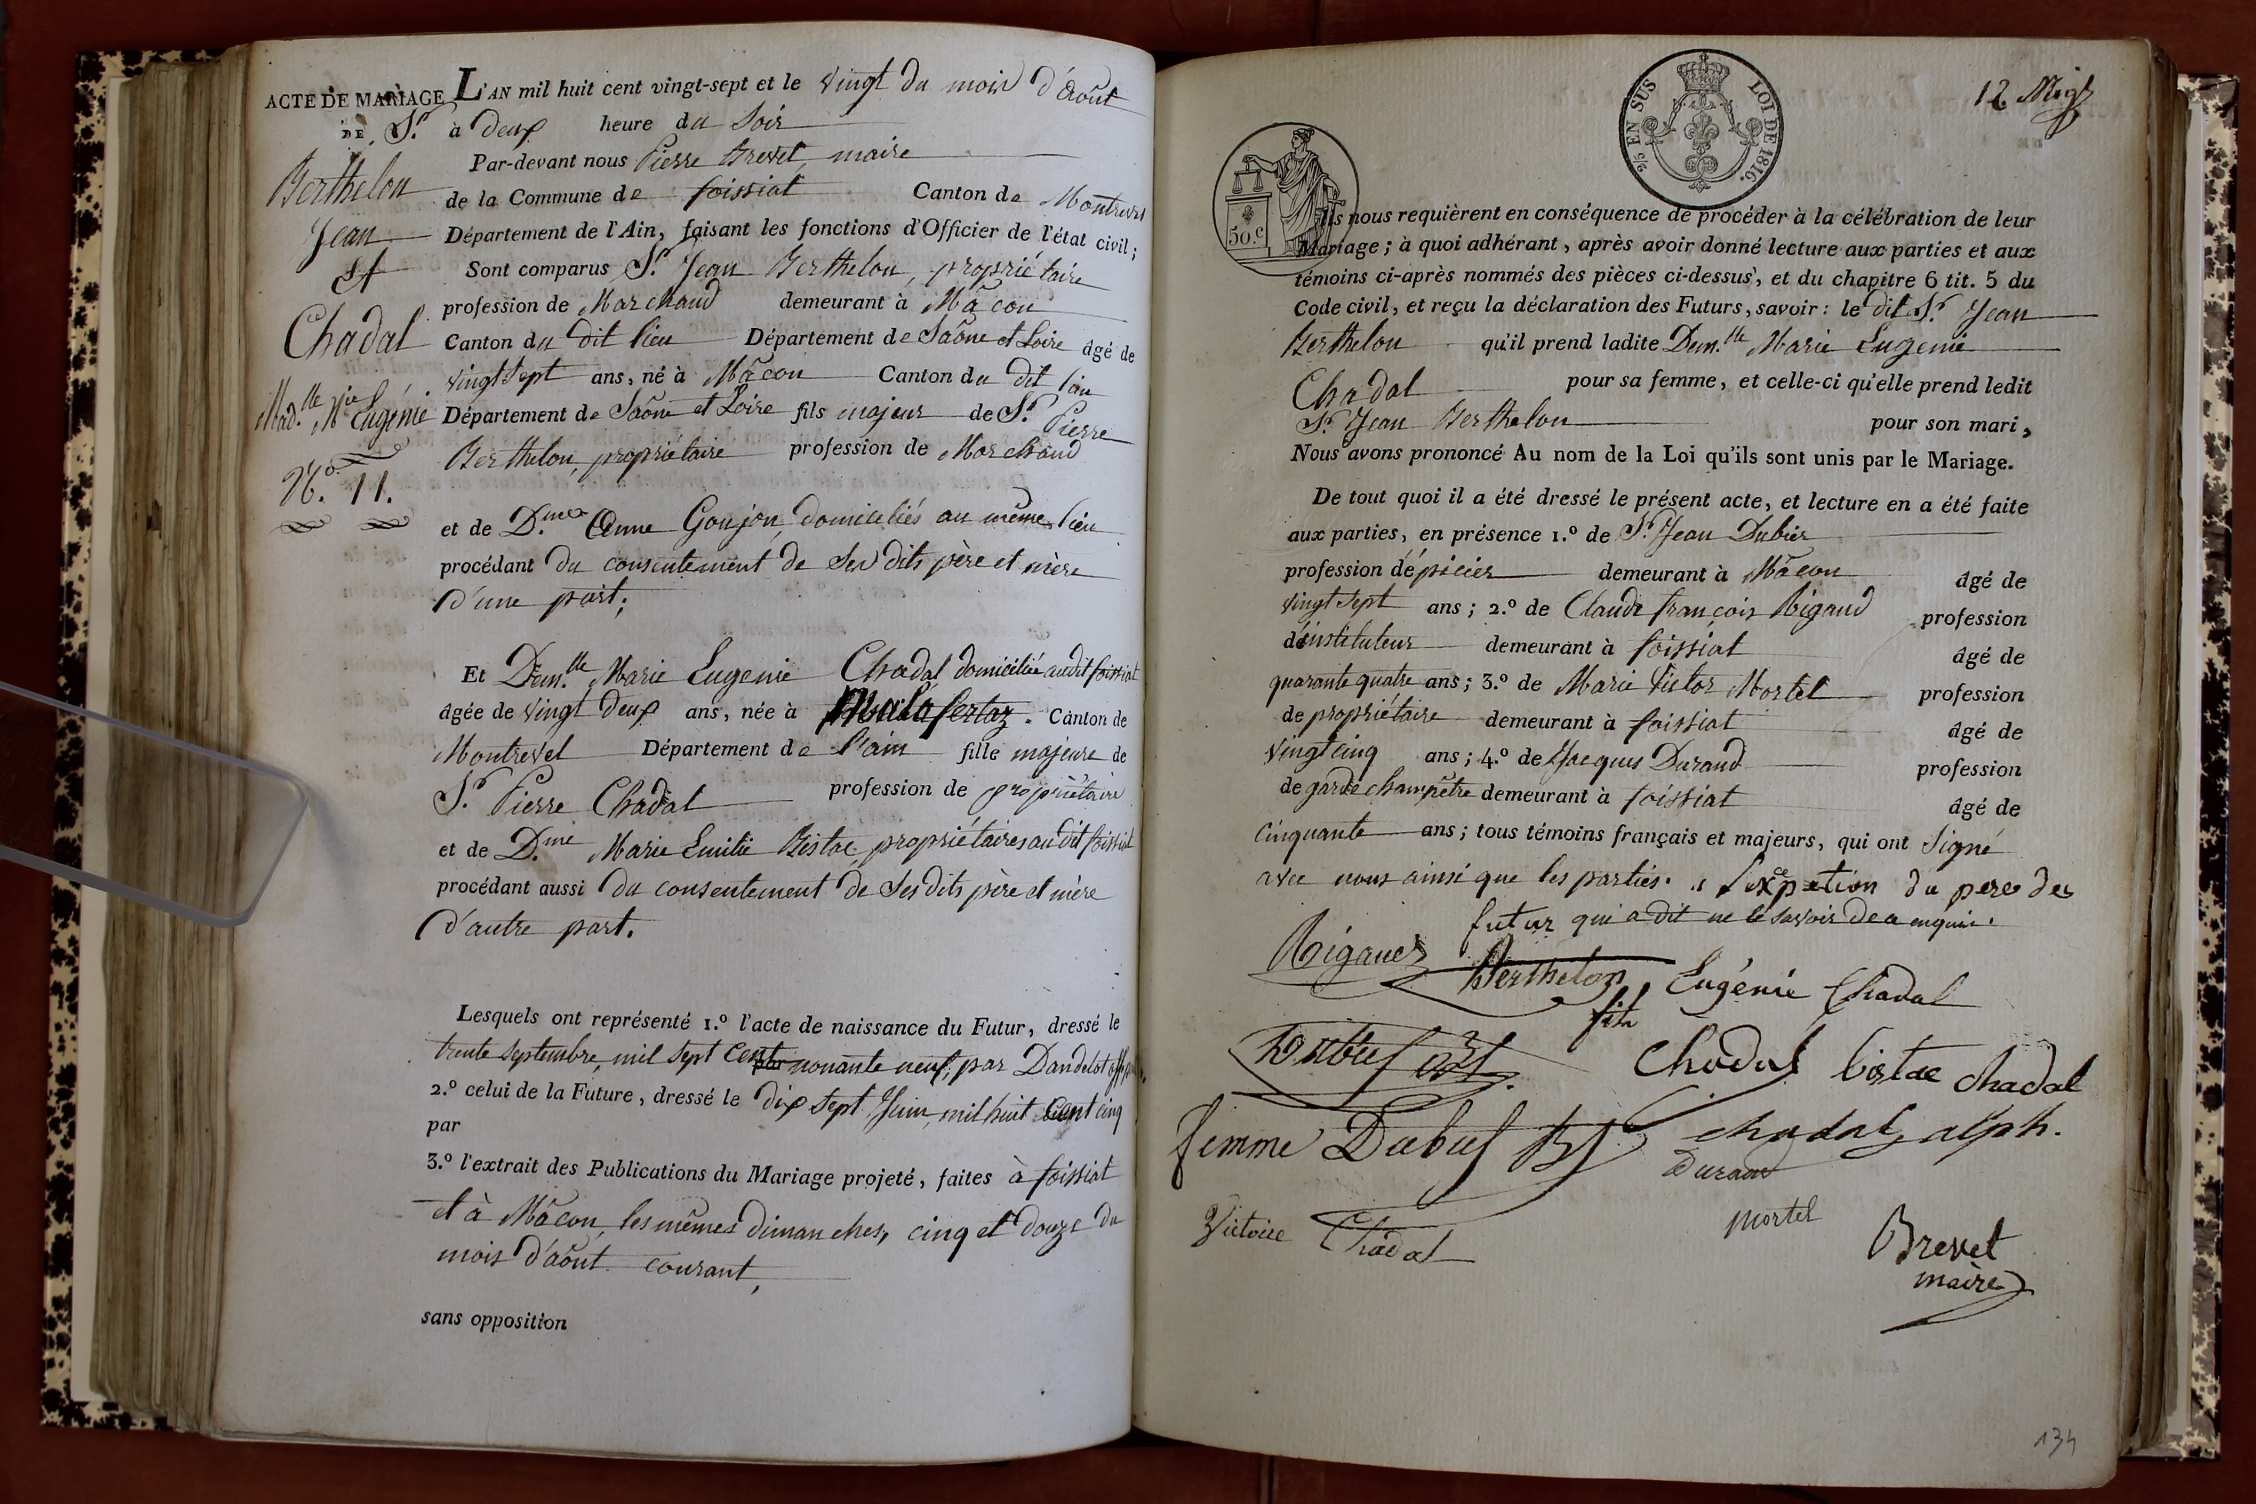 ACTE DE MARIAGE
DE S.r
Berthelon
Jean
et
Chadal
Mad.lle M.ie Eugénie
N.o 11.
L'AN mil huit cent vingt-sept et le vingt du mois d'août
à deux heure du soir
Par-devant nous Pierre Brevet, maire
de la Commune de foissiat Canton de Montrevel
Département de l'Ain, faisant les fonctions d'Officier de l'état civil;
Sont comparus S.r Jean Berthelon, propriétaire
profession de Marchand demeurant à Mâcon
Canton du dit lieu Département de Saône et Loire âgé de
vingt sept ans, né à Mâcon Canton du dit lieu
Département de Saône et Loire fils majeur de S.r Pierre
Berthelon, propriétaire profession de Marchand
et de D.me Anne Goujon, domiciliés au même lieu
procédant du consentement de ses dits père et mère
d'une part;
Et Dem.lle Marie Eugenie Chadal domiciliée audit foissiat
âgée de vingt deux ans, née à Malafertaz. Canton de
Montrevel Département de l'ain fille majeure de
S.r Pierre Chadal profession de propriétaire
et de D.me Marie Emilie Bistac, propriétaires au dit foissiat
procédant aussi du consentement de ses dits père et mère
d'autre part.
Lesquels ont représenté 1.o l'acte de naissance du Futur, dressé le
trente septembre, mil sept cent nonante neuf, par Dandelot
2.o celui de la Future, dressé le dix sept Juin, mil huit cent cinq
par
3.o l'extrait des Publications du Mariage projeté, faites à foissiat
et à Mâcon, les mêmes dimanches, cinq et douze du
mois d'août courant,
sans opposition
12 Mig
2/5 EN SUS LOI DE 1816.
50.c
Ils nous requièrent en conséquence de procéder à la célébration de leur
Mariage; à quoi adhérant, après avoir donné lecture aux parties et aux
témoins ci-après nommés des pièces ci-dessus, et du chapitre 6 tit. 5 du
Code civil, et reçu la déclaration des Futurs, savoir: le dit S.r Jean
Berthelon qu'il prend ladite Dem.lle Marie Eugenie
Chadal pour sa femme, et celle-ci qu'elle prend ledit
S.r Jean Berthelon pour son mari,
Nous avons prononcé Au nom de la Loi qu'ils sont unis par le Mariage.
De tout quoi il a été dressé le présent acte, et lecture en a été faite
aux parties, en présence 1.o de S.r Jean Dubier
profession d'épicier demeurant à Mâcon âgé de
vingt sept ans; 2.o de Claude françois Rigaud profession
d'instituteur demeurant à foissiat âgé de
quarante quatre ans; 3.o de Marie Victor Mortel profession
de propriétaire demeurant à foissiat âgé de
vingt cinq ans; 4.o de Jacques Durand profession
de garde champêtre demeurant à foissiat âgé de
cinquante ans; tous témoins français et majeurs, qui ont signé
avec nous ainsi que les parties. à l'exception du pere de
futur qui a dit ne le savoir de ce enquis.
Rigaud Berthelon fils Eugénie Chadal
Chadal bistac chadal
femme Dubief chadal alph.
Durand
Victoire Chadal mortel
Brevet
maire
134